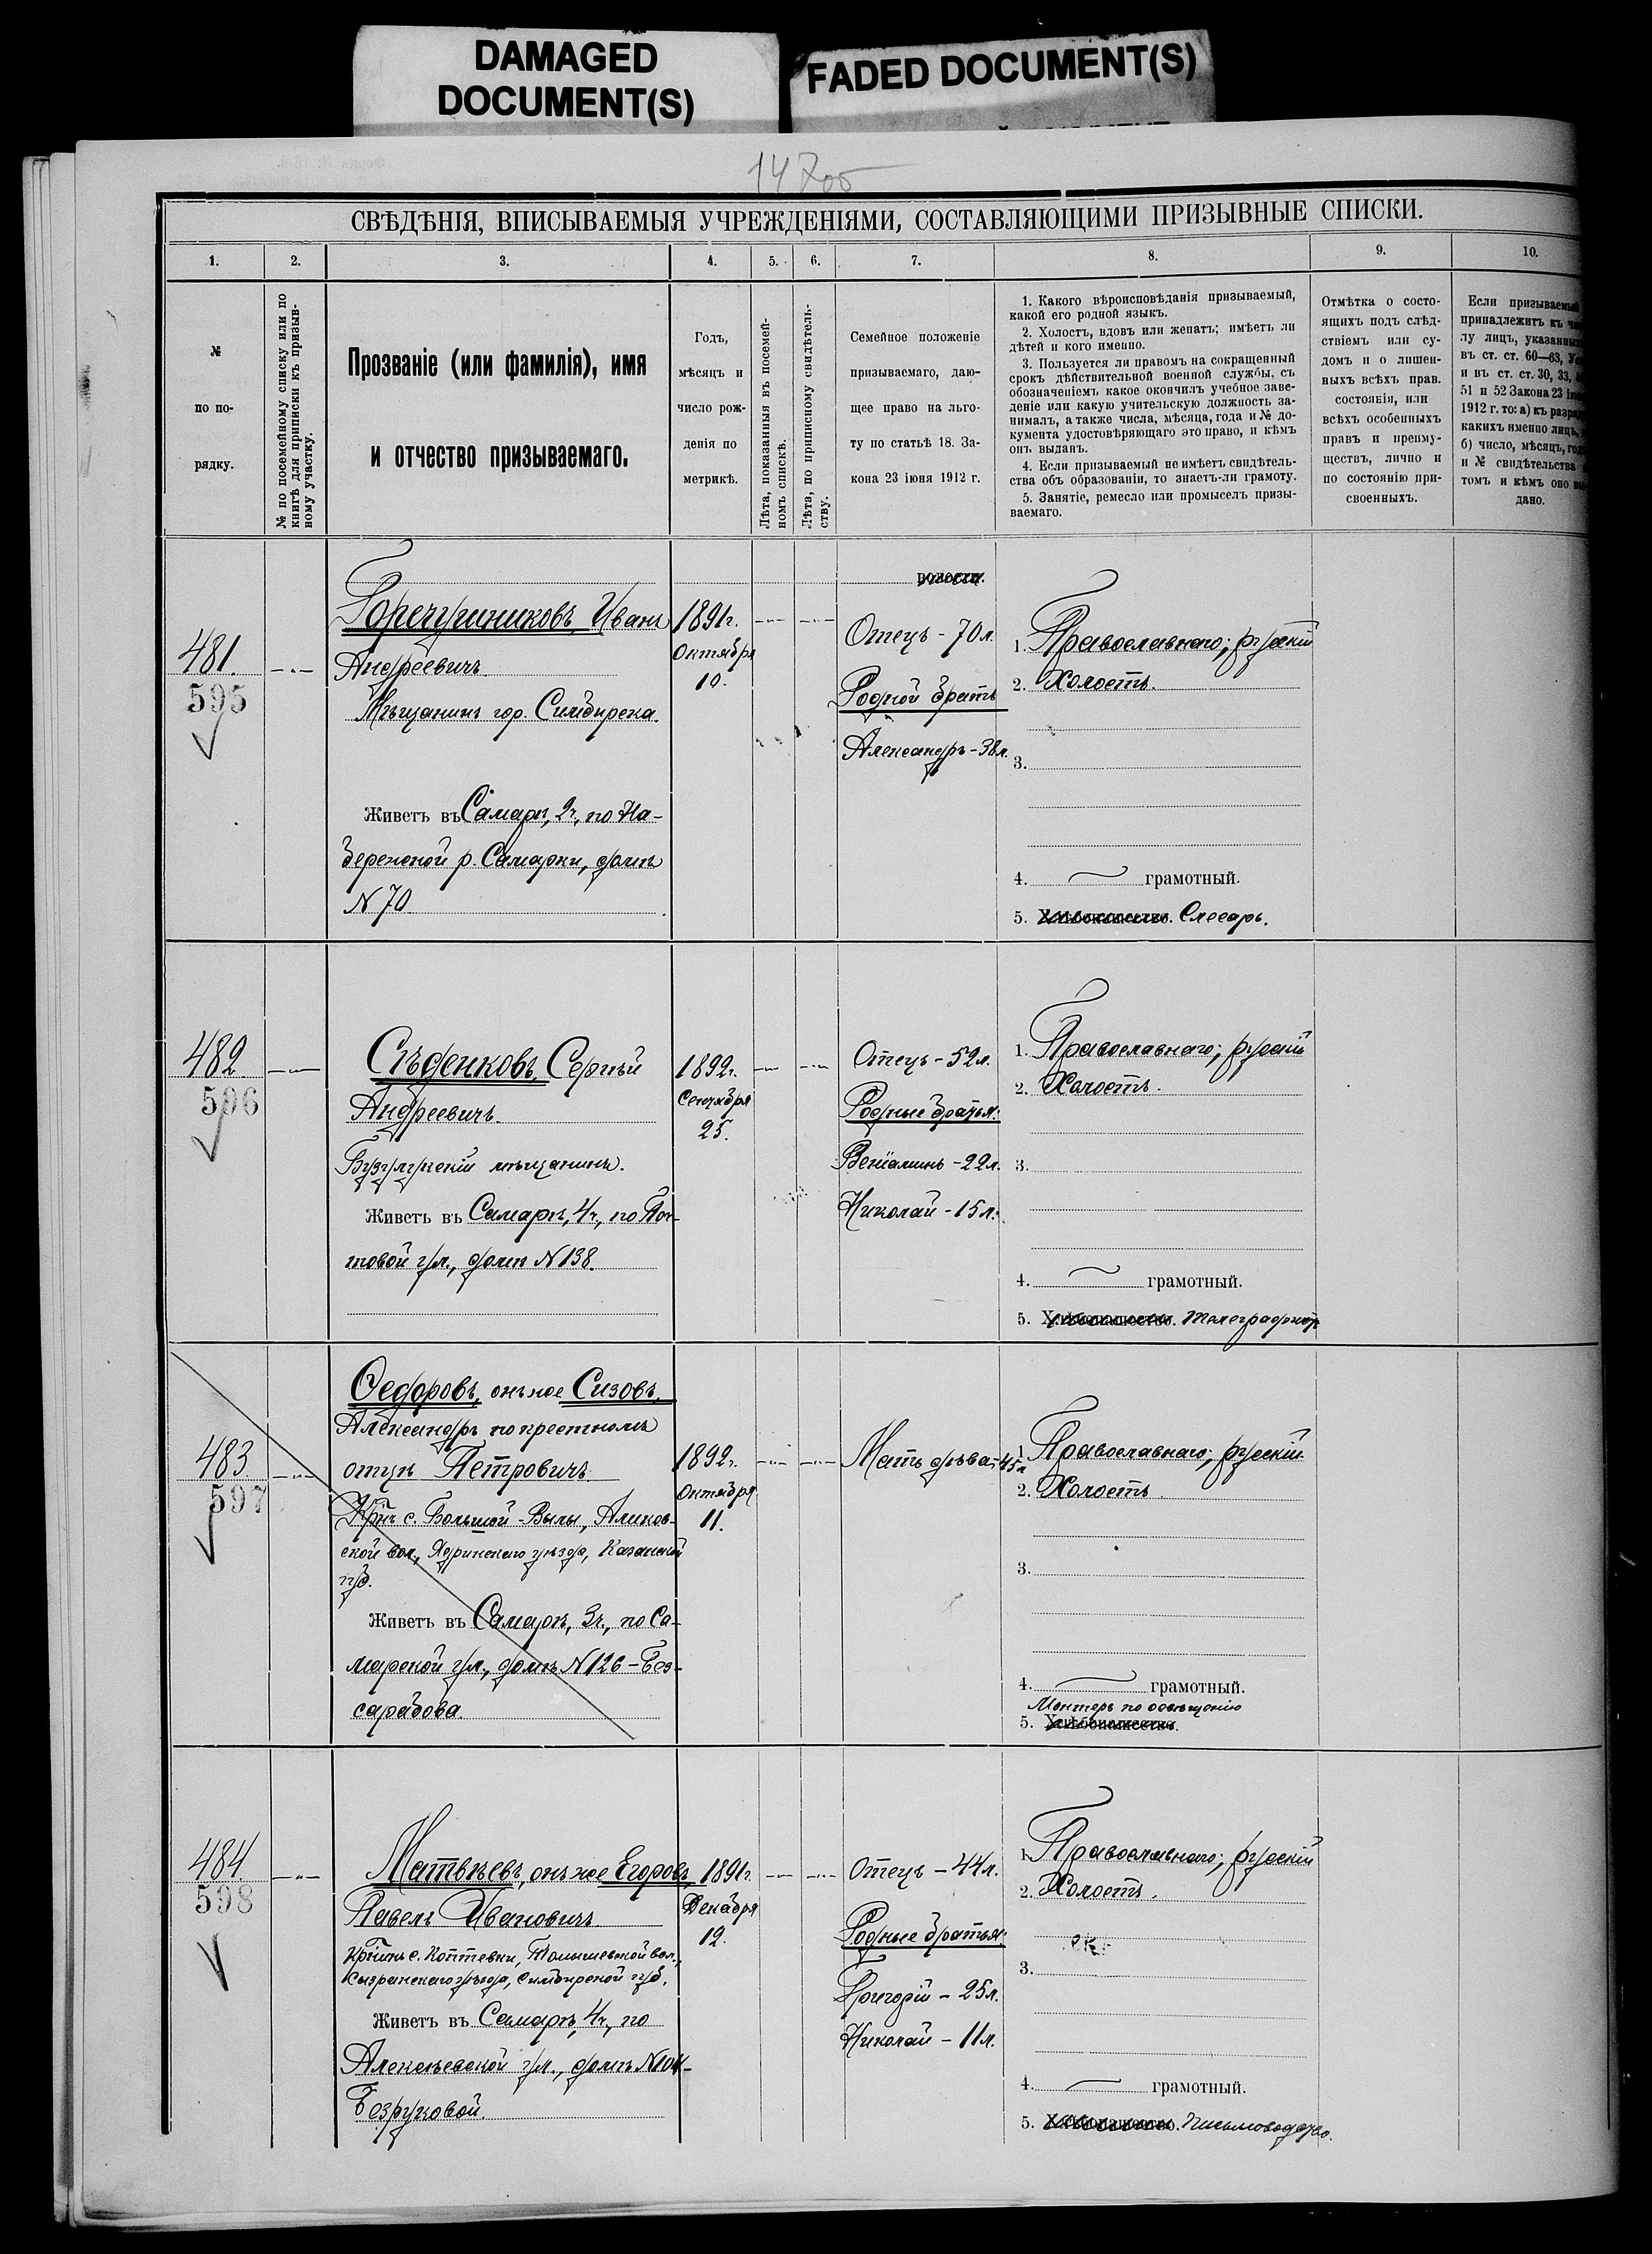 DAMAGED
DOCUMENT(S)
FADED DOCUMENT(S)
147об
СВѢДѢНІЯ, ВПИСЫВАЕМЫЯ УЧРЕЖДЕНІЯМИ, СОСТАВЛЯЮЩИМИ ПРИЗЫВНЫЕ СПИСКИ.
1.
2.
3.
4.
5.
6.
7.
8.
9.
10.
№
по по-
рядку.
№ по посемейному списку или по
книгѣ для приписки къ призыв-
ному участку.
Прозваніе (или фамилія), имя
и отчество призываемаго.
Годъ,
мѣсяцъ и
число рож-
денія по
метрикѣ.
Лѣта, показанныя въ посемей-
номъ спискѣ.
Лѣта, по приписному свидѣтель-
ству.
Семейное положеніе
призываемаго, даю-
щее право на льго-
ту по статьѣ 18. За-
кона 23 іюня 1912 г.
1. Какого вѣроисповѣданія призываемый,
какой его родной языкъ.
2. Холостъ, вдовъ или женатъ; имѣетъ ли
дѣтей и кого именно.
3. Пользуется ли правомъ на сокращенный
срокъ дѣйствительной военной службы, съ
обозначеніемъ какое окончилъ учебное заве-
деніе или какую учительскую должность за-
нималъ, а также числа, мѣсяца, года и № до-
кумента удостовѣряющаго это право, и кѣмъ
онъ выданъ.
4. Если призываемый не имѣетъ свидѣтель-
ства объ образованіи, то знаетъ-ли грамоту.
5. Занятіе, ремесло или промыселъ призы-
ваемаго.
Отмѣтка о состо-
ящихъ подъ слѣд-
ствіемъ или су-
домъ и о лишен-
ныхъ всѣхъ прав.
состоянія, или
всѣхъ особенныхъ
правъ и преиму-
ществъ, лично и
по состоянію при-
своенныхъ.
Если призываемый
принадлежитъ къ
лу лицъ, указанныхъ
въ ст. ст. 60—63,
и въ ст. ст. 30, 33,
51 и 52 Закона 23
1912 г. то: а) къ
какихъ именно лицъ,
б) число, мѣсяцъ,
и № свидѣтельства
томъ и кѣмъ оно
дано.
481.
595
Иванъ
Андреевичъ.
Мѣщанинъ гор. Симбирска.
Живетъ въ Самарѣ, 2ч., по На-
бережной р. Самарки, домъ
N 70
1891г.
Октября
10.
волости.
Отецъ - 70 л.
Родной братъ
Александръ - 38 л.
1. Православнаго; русскій
2. Холостъ.
3.
4. грамотный.
5. Хлѣбопашество. Слесарь.
482
596
Слѣденковъ, Сергѣй
Андреевичъ.
Бузулукскій мѣщанинъ.
Живетъ въ Самарѣ, 4ч., по Поч-
товой ул., домъ N 138.
1892г.
Сентября
25.
Отецъ - 52 л.
Родные братья:
Веніаминъ - 22 л.
Николай - 15 л.
1. Православнаго; русскій
2. Холостъ.
3.
4. грамотный.
5. Хлѣбопашество. Телеграфистъ
483
597
Федоровъ, онъ же Сизовъ,
Александръ по крестному
отцу Петровичъ
Крнъ с. Большой-Вылы, Аликов-
ской вол., Ядринскаго уѣзда, Казанской
губ.
Живетъ въ Самарѣ, 3ч., по Са-
марской ул., домъ N 126 - Без-
сарабова.
1892г.
Октября
11.
Мать дѣва - 45 л
1. Православнаго; русскій
2. Холостъ.
3.
4. грамотный.
Монтеръ по освѣщенію
5. Хлѣбопашество.
484
598
Матвѣевъ, онъ же Егоровъ,
Павелъ Ивановичъ
Крнинъ с. Коптевки, Томышевской вол.,
Сызранскаго уѣзда, Симбирской губ.
Живетъ въ Самарѣ, 4ч., по
Алексѣевской ул., домъ N 104 -
Безруковой.
1891г.
Декабря
12.
Отецъ - 44 л.
Родные братья:
Григорій - 25 л.
Николай - 11 л.
1. Православнаго; русскій
2. Холостъ.
3.
4. грамотный.
5. Хлѣбопашество. Письмоводство.